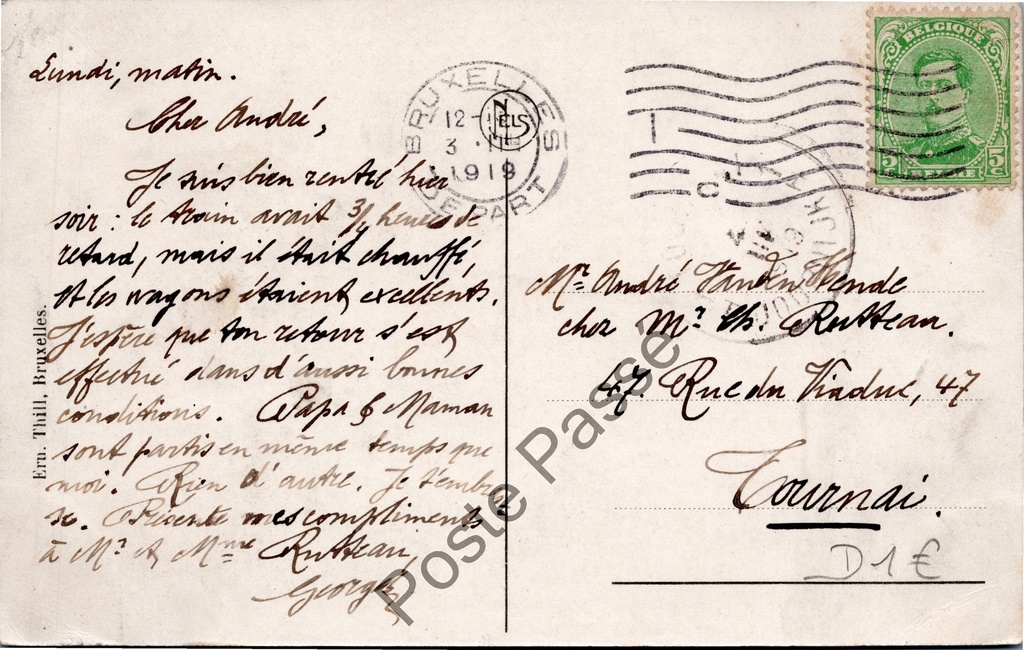 Lundi, matin.
Cher André,
Je suis bien rentré hier
soir : le train avait 3/4 heures de
retard, mais il était chauffé,
et les wagons étaient excellents.
J'espère que ton retour s'est
effectué dans d'aussi bonnes
conditions. Papa & Maman
sont partis en même temps que
moi. Rien d'autre. Je t'embras
se. Présente mes compliments
à Mr et Mme Rutteau,
Georges
Ern. Thill, Bruxelles.
BRUXELLES
12-
3 II
1919
DEPART
NELS
BELGIQUE
5c 5c
TOURNAI
DOORNIJK
Mr André Vanden Hende
chez Mr Ch. Rutteau.
47. Rue du Viaduc, 47
Tournai.
D 1 €
Poste Passé